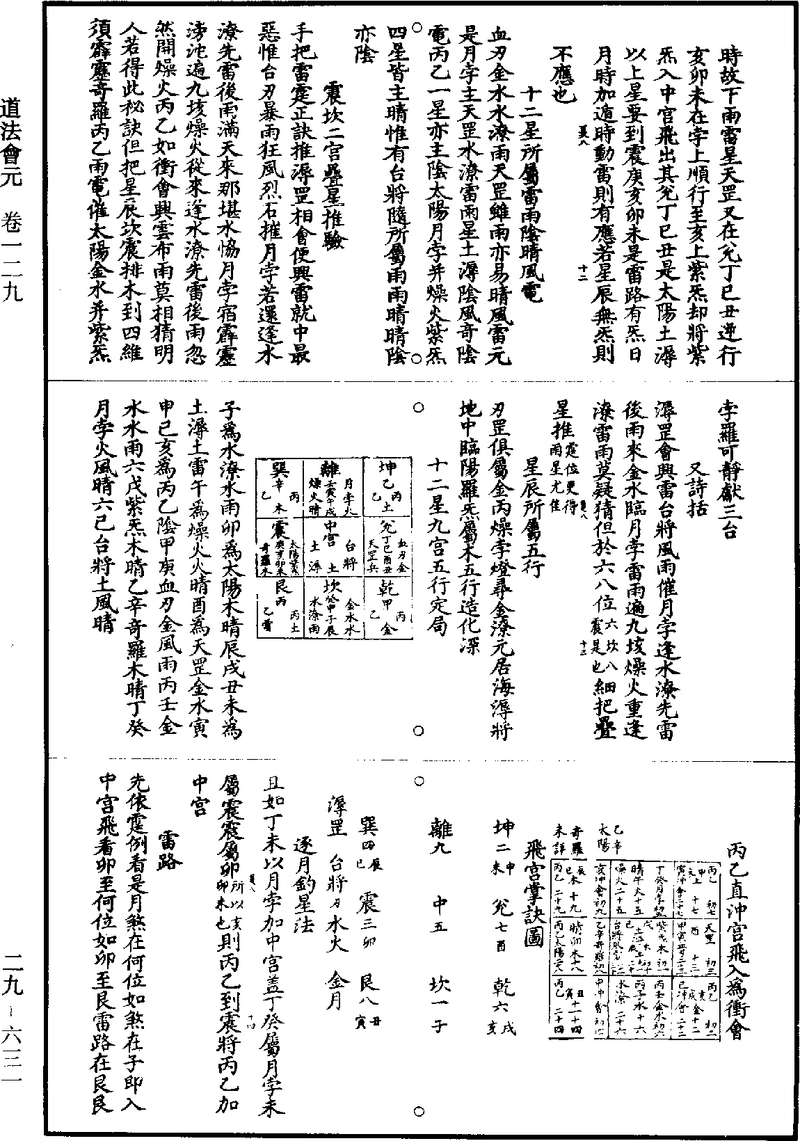 時故下雨雷星天罡又在兊丁巳丑逆行
亥卯未在孛上順行至亥上紫炁却將紫
炁入中宮飛出其兊丁巳丑是太陽土㴆
以上星要到震庚亥卯未是雷路有炁日
月時加遁時動雷則有應若星辰無炁則
不應也
十二星所屬雷雨陰晴風電
血刃金水水潦雨天罡雖雨亦易晴風雷元
是月孛主天罡水潦雷雨星土㴆陰風奇陰
電丙乙一星亦主陰太陽月孛并燥火紫炁
四星皆主晴惟有台將隨所屬雨雨晴晴陰
亦陰
震坎二宮疊星推驗
手把雷霆正訣推㴆罡相會便興雷就中最
惡惟台刃暴雨狂風烈石摧月孛若還逢水
潦先雷後雨滿天來那堪水愶月孛宿霹靂
滂沱遍九垓燥火從來逢水潦先雷後雨忽
然開燥火丙乙如衝會興雲布雨莫相猜明
人若得此秘訣但把星辰坎震排木到四維
須霹靂奇羅丙乙雨電催太陽金水并紫炁
孛羅可靜獻三台
又詩括
㴆罡會興雷台將風雨催月孛逢水潦先雷
後雨來金水臨月孛雷雨遍九垓燥火重逢
潦雷雨莫疑猜但於六八位六坎八震是也細把疊
星推霆位更得雨星尤佳
星辰所屬五行
刃罡俱屬金丙燥孛燈尋金潦元居海㴆將
地中臨陽羅炁屬木五行造化深
十二星九宮五行定局
坤 丙乙土
離 月孛火 壬寅午戌 燥火晴
巽 丙辛木乙
兊 血刃金 丁巳酉丑 天罡兵
中宮 台將土 土㴆
震 太陽紫炁 庚亥卯未 奇羅木
乾 丙甲金乙
坎 金水水 癸申子辰 水潦雨
艮 丙 丙土 乙雷
子爲水潦水雨卯爲太陽木晴辰戌丑未爲
土㴆土雷午爲燥火火晴酉爲天罡金水寅
申巳亥爲丙乙陰甲庚血刃金風雨丙壬金
水水雨六戊紫炁木晴乙辛奇羅木晴丁癸
月孛火風晴六己台將土風晴
丙乙直沖宮飛入爲衝會
乙辛
太陽
奇羅
未詳
飛宮掌訣圖
坤二未申 兊七酉 乾六戌亥
離九 中五 坎一子
巽四辰巳 震三卯 艮八丑寅
㴆罡 台將刃 水火 金月
逐月釣星法
且如丁未以月孛加中宮盖丁癸屬月孛未
屬震震屬卯所以亥卯未也則丙乙到震將丙乙加
中宮
雷路
先依霆例看是月煞在何位如煞在子即入
中宮飛看卯至何位如卯至艮雷路在艮艮
道法會元 卷一二九
二九－六三一